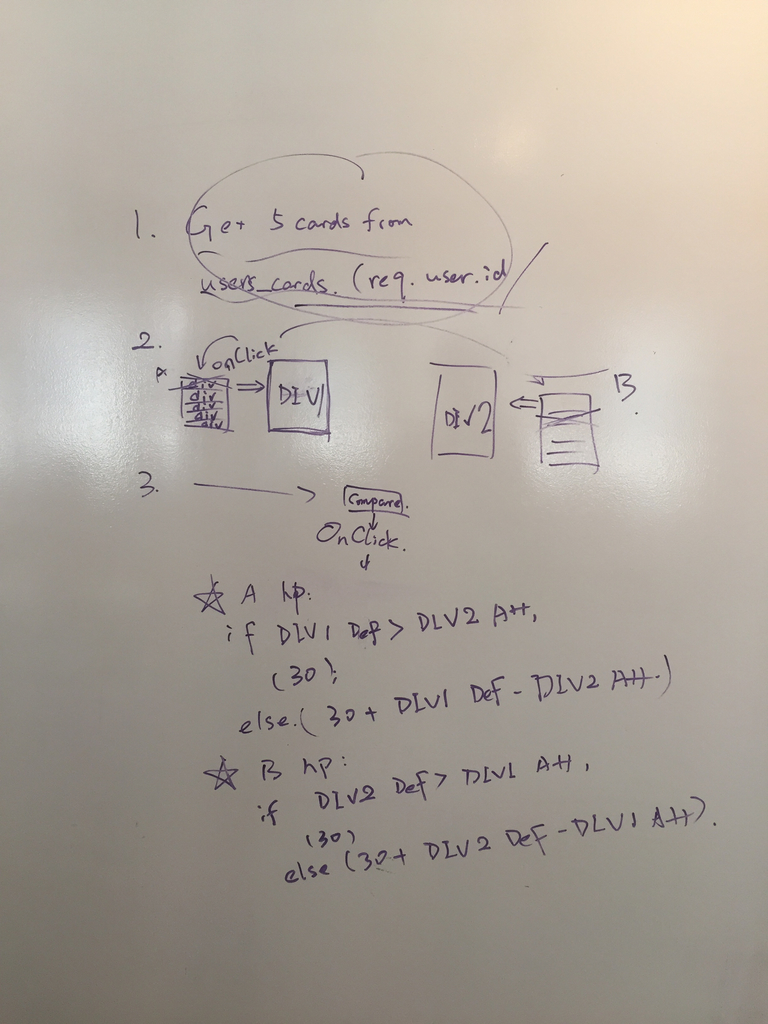 1. Get 5 cards from
users_cards. (req. user.id
2.
onClick
A
div
div
div
div
div
DIV1
DIV2
B
3.
Compare.
OnClick.
A hp:
if DIV1 Def > DIV2 Att,
(30);
else. (30 + DIV1 Def - DIV2 Att.)
B hp:
if DIV2 Def > DIV1 Att,
(30)
else (30 + DIV2 Def - DIV1 Att).